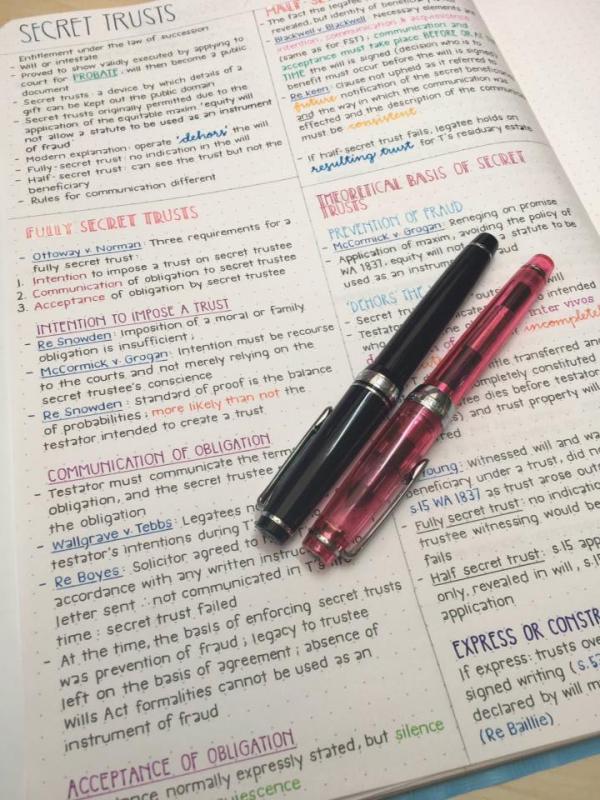 SECRET TRUSTS
- Entitlement under the law of succession
- will or intestate
- Proved to show validly executed by applying to
court for PROBATE; will then become a public
document
- Secret trusts: a device by which details of a
gift can be kept out the public domain
- Secret trusts originally permitted due to the
application of the equitable maxim 'equity will
not allow a statute to be used as an instrument
of fraud'
- Modern explanation: operate 'dehors' the will
- Fully-secret trust: no indication in the will
- Half-secret trust: can see the trust but not the
beneficiary
- Rules for communication different
FULLY SECRET TRUSTS
- Ottoway v. Norman: Three requirements for a
fully secret trust:
1. Intention to impose a trust on secret trustee
2. Communication of obligation to secret trustee
3. Acceptance of obligation by secret trustee
INTENTION TO IMPOSE A TRUST
- Re Snowden: imposition of a moral or family
obligation is insufficient;
- McCormick v. Grogan: Intention must be recourse
to the courts and not merely relying on the
secret trustee's conscience
- Re Snowden: standard of proof is the balance
of probabilities; more likely than not the
testator intended to create a trust
COMMUNICATION OF OBLIGATION
- Testator must communicate the terms
obligation, and the secret trustee
the obligation
- Wallgrave v. Tebbs: Legatees
testator's intentions during T's
- Re Boyes: Solicitor agreed to
accordance with any written
letter sent ∴ not communicated in T's
time: secret trust failed
- At the time, the basis of enforcing secret trusts
was prevention of fraud; legacy to trustee
left on the basis of agreement; absence of
Wills Act formalities cannot be used as an
instrument of fraud
ACCEPTANCE OF OBLIGATION
normally expressly stated, but silence
- The fact the legatee
revealed, but identity of
- Blackwell v. Blackwell: Necessary elements are
intention, communication & acquiescence
(same as for FST); communication and
acceptance must take place BEFORE OR AT
TIME the will is signed (decision who is to
benefit must occur before the will is signed)
- Re Keen: clause not upheld as it referred to
future notification of the secret beneficiary
and the way in which the communication was
effected and the description of the
must be consistent
- If half-secret trust fails, legatee holds on
resulting trust for T's residuary estate
THEORETICAL BASIS OF SECRET
TRUSTS
PREVENTION OF FRAUD
- McCormick v. Grogan: Reneging on promise
- Application of maxim, avoiding the policy of
WA 1837; equity will not a statute to be
used as an instrument fraud
'DEHORS THE
- Secret will
- Testator intended
inter vivos
incompletely
transferred and
completely constituted
dies before testator
and trust property will
Young: Witnessed will and was
beneficiary under a trust, did not
s.15 WA 1837 as trust arose outside
- Fully secret trust: no indication
trustee witnessing would be
fails
- Half secret trust: s.15
only, revealed in will, s.15
application
EXPRESS OR
If express: trusts over
signed writing (s.53
declared by will
(Re Baillie)